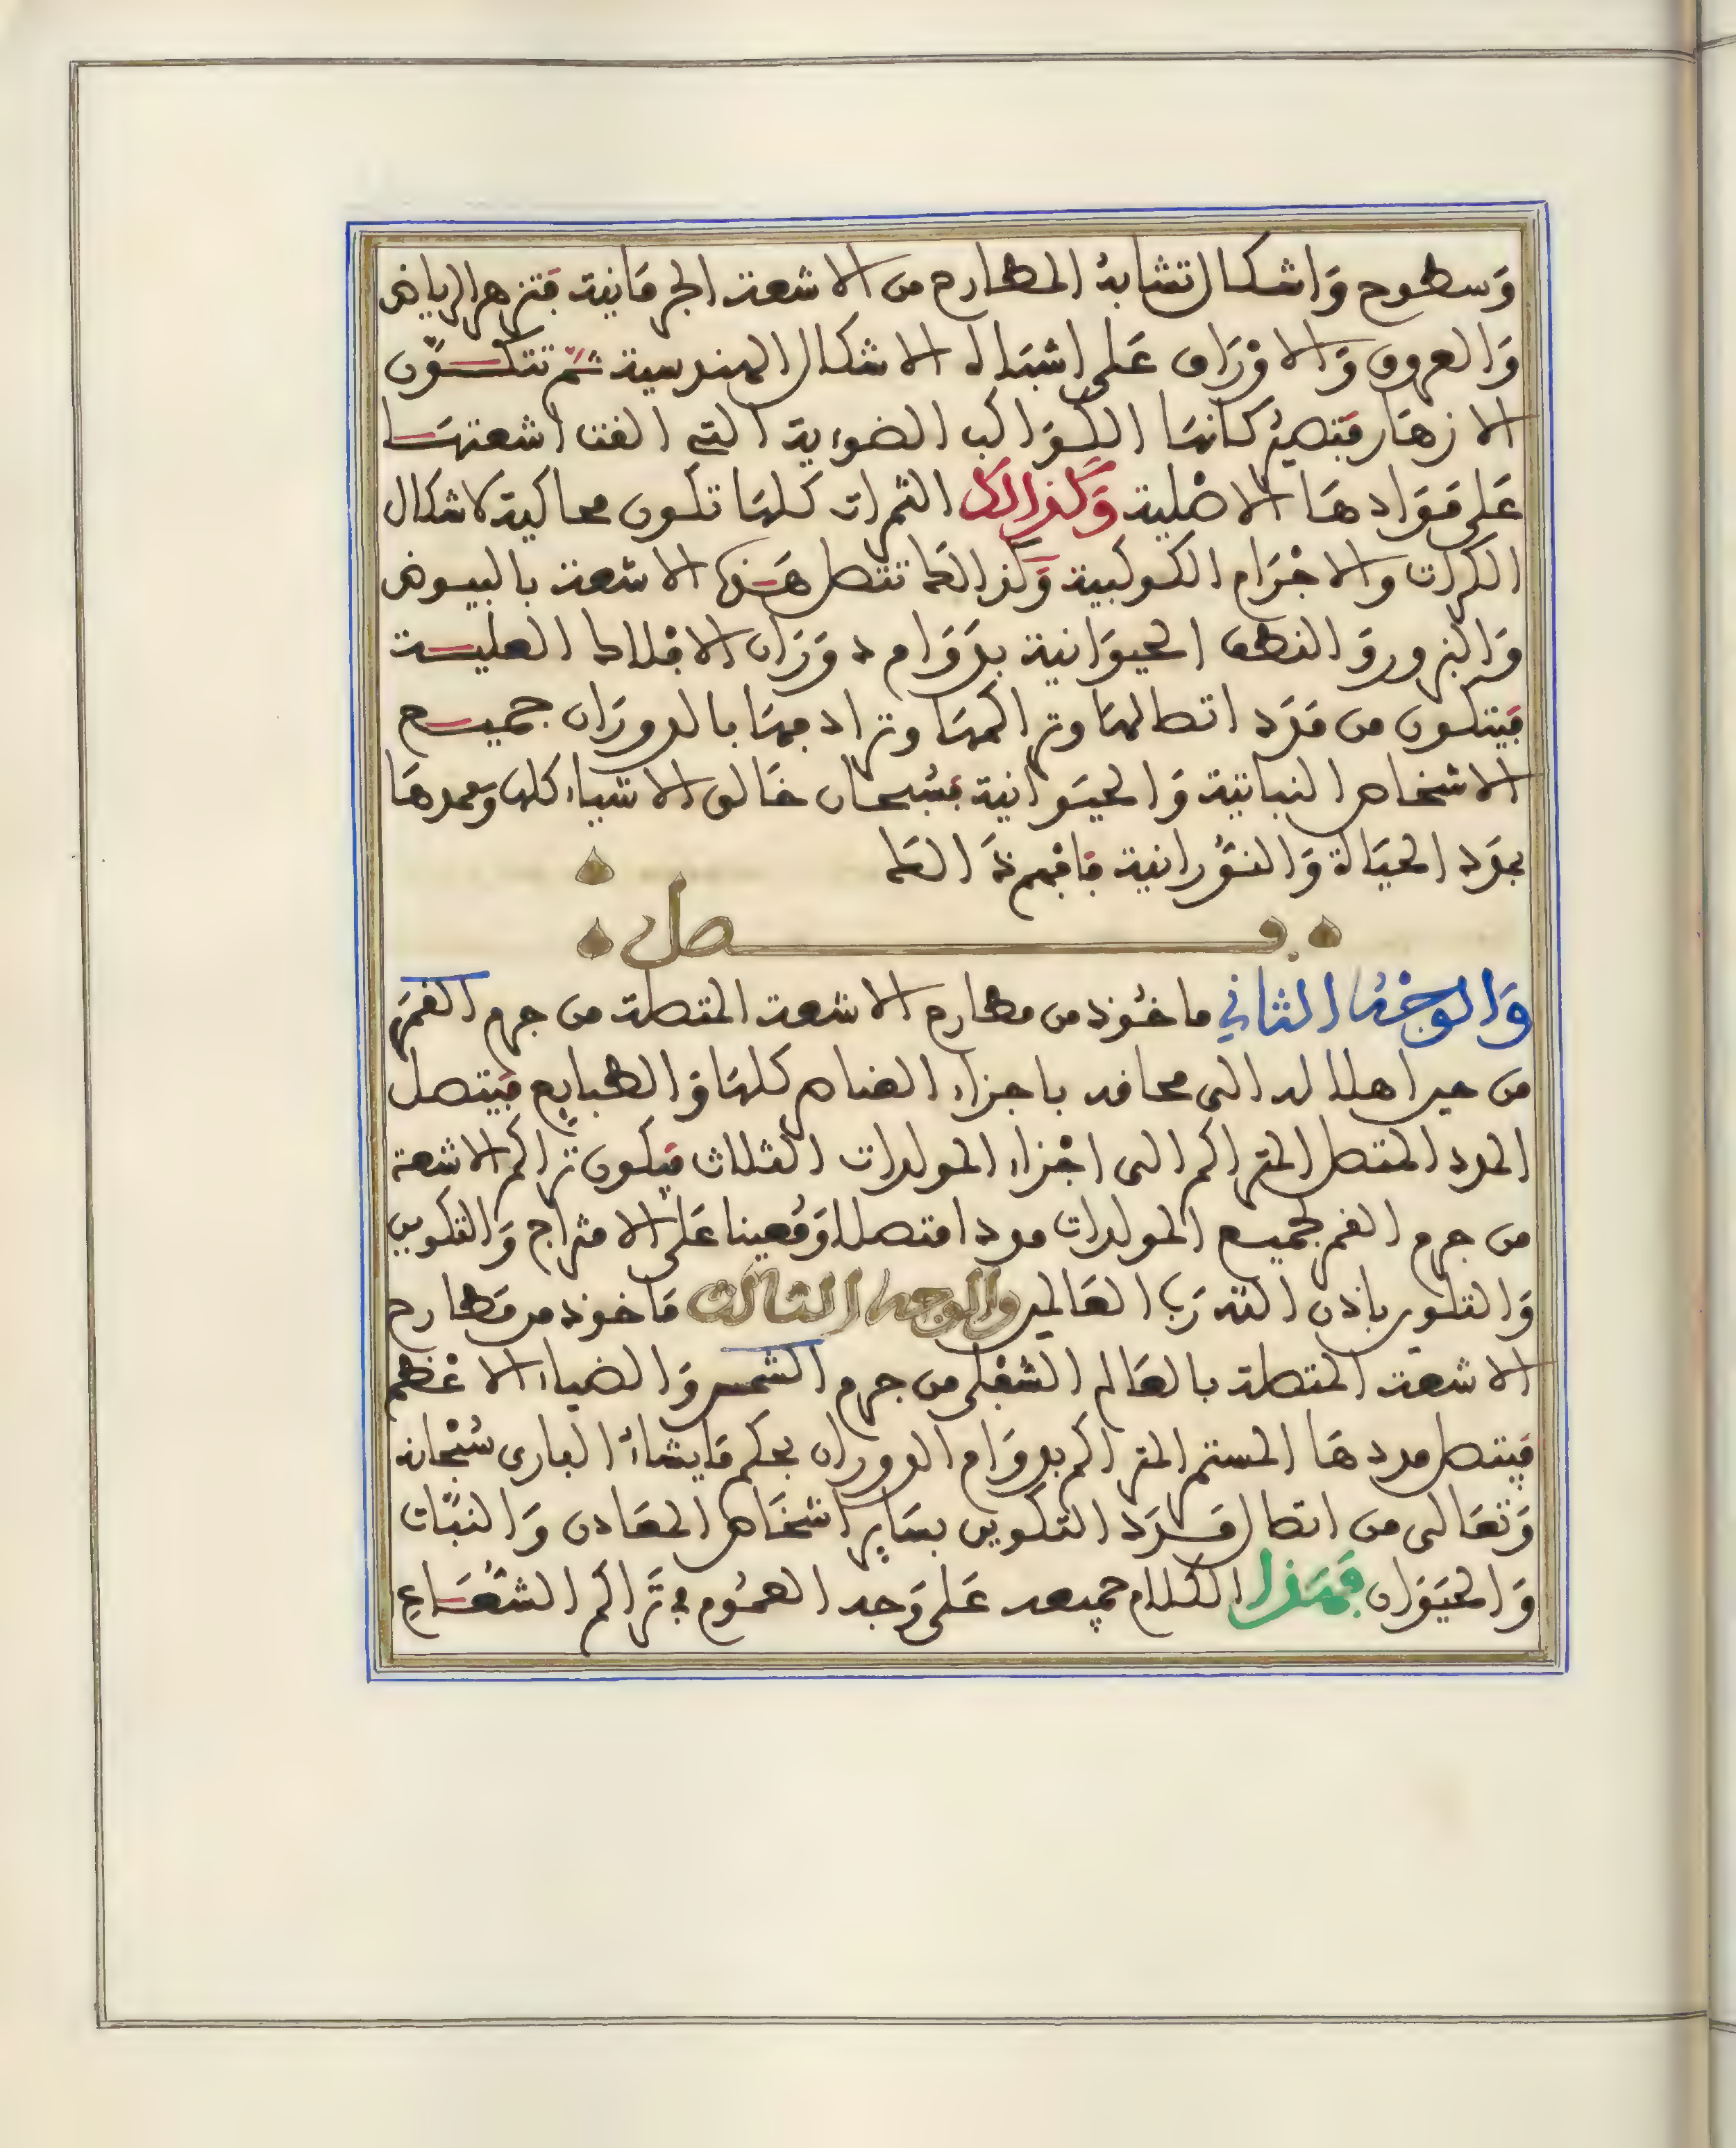 وَسطوح وَاشكال تشابهُ المطارح من الاشعة الجرمَانية فتزهر الرياض
وَالعروق وَالاوْرَاق عَلى اشبَاه الاشكال الهندسية ثمّ تتكَوّن
الازهَار فتصيرُ كانهَا الكوَاكب الضوءية التي القت اشعتهَا
عَلى مَوَادهَا الاصْلية وَكذالك الثمرات كلهَا تكون محاكية لاشكال
الكرات والاجْرَام الكوكبية وَكذالك تتصل هَذه الاشعة بالبيوض
وَالبزور وَالنطف الحيوَانية بدَوَام دوَرَان الافلاك العلية
فيتكون من مَدَد اتصالهَا وتراكمهَا وترادفهَا بالدورَان جميع
الاشخاص النباتية وَالحيَوانية فسُبحان خَالق الاشياء كلها وَممدهَا
بمدَد الحيَاة وَالنوُرانية فافْهم ذَالك
فصل
وَالوجْهُ الثاني ماخُوذ من مطارح الاشعة المتصلة من جرم القمَر
من حين اهلاله الى محاقه باجزاء العناصر كلهَا وَالطبايع فيتصل
المدد المتصل المتراكم الى اجْزاء المولدات الثلاث فيكون تَراكم الاشعة
من جرم القمر لجميع المولدات مددا متصلا وَمُعينا عَلى الامتزاج وَالتكوين
وَالتلوين باذن الله رَب العَالمين والوجه الثالث مَاخوذ من مَطارح
الاشعة المتصلة بالعَالم السُّفلى من جرم الشمس وَالضياء الاعْظم
فيتصل مددهَا المستمر المتراكم بدوَام الدوران بحكم مَايشاءُ البارى سُبْحانه
وَتعَالى من اتصال مَدَد التكوين بسَاير اشخَاص المعَادن وَالنبَات
وَالحيَوَان فهَذا الكلام جميعه عَلى وَجه العمُوم في تَراكم الشعَاع